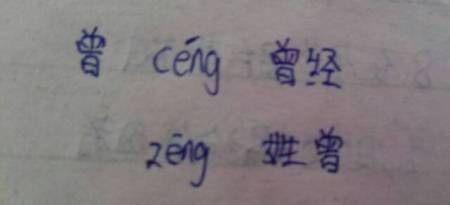 曾 céng 曾经
zēng 姓曾